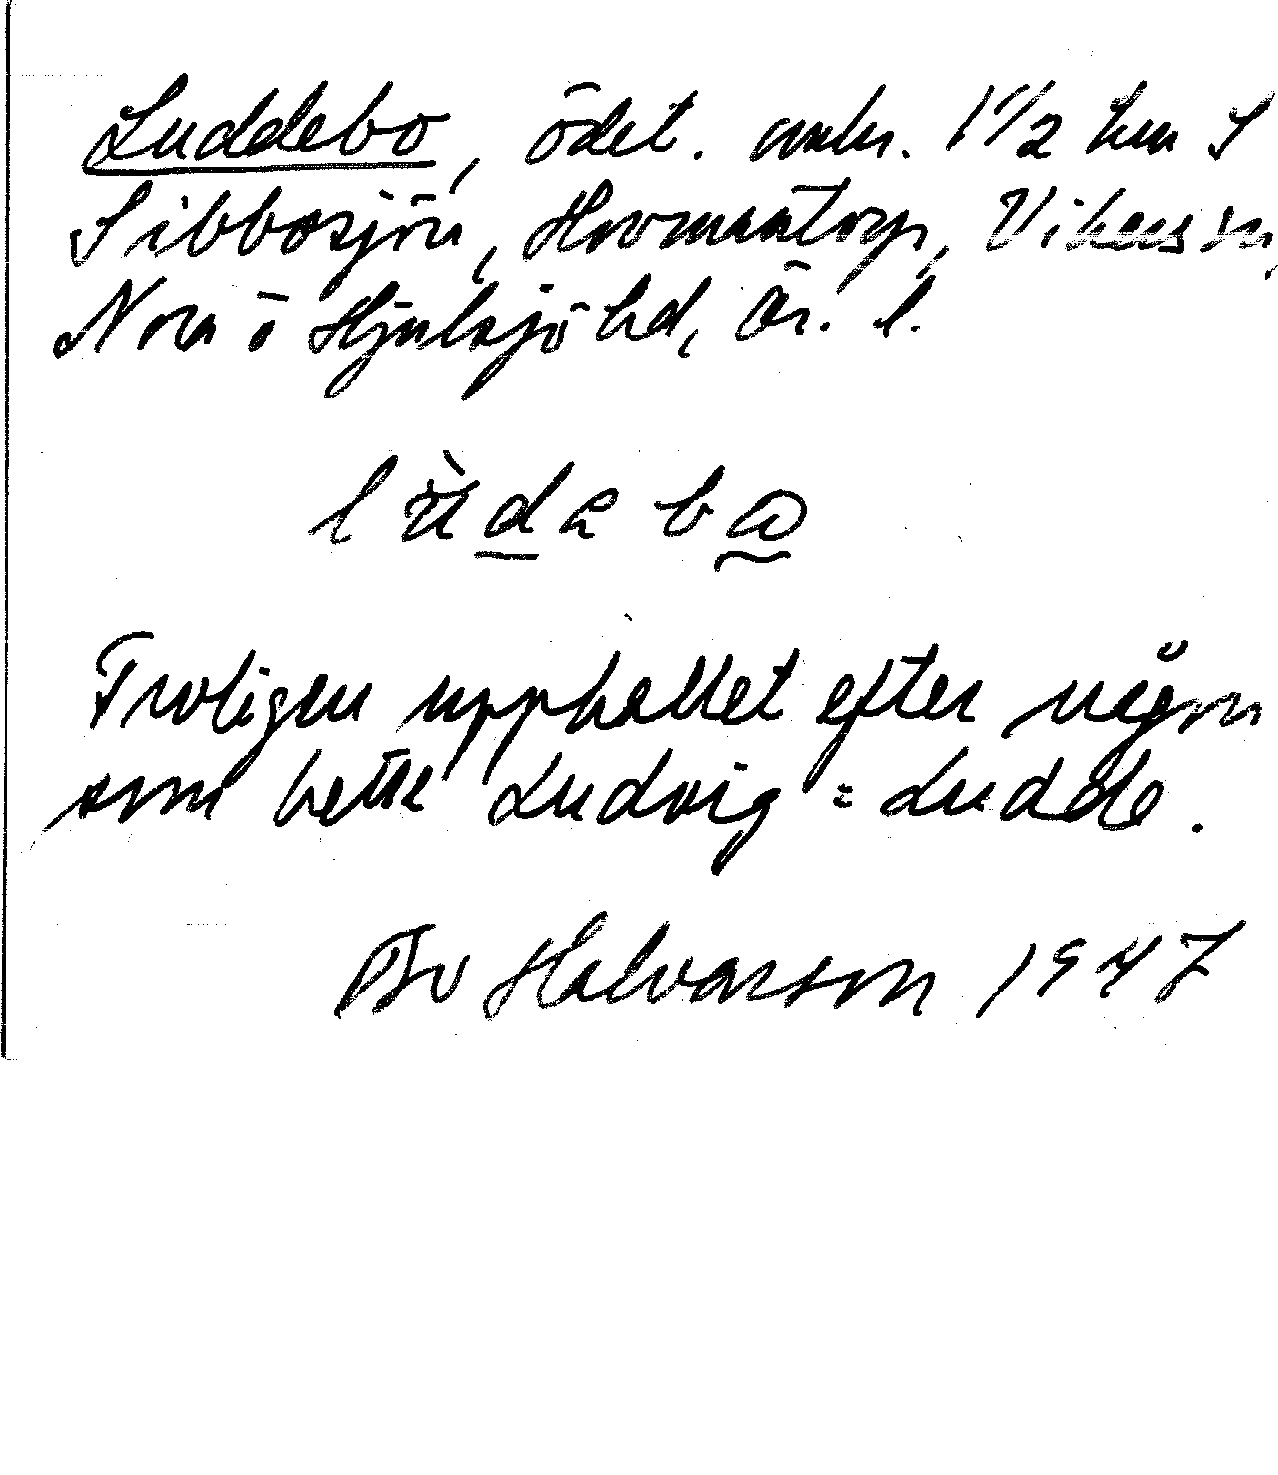 Luddebo, ödet. omkr. 1 1/2 km S
Sibbosjön, Hovmantorp, Vikers sn,
Nora o Hjulsjö hd, Ör. l.
lùdɘbω
Troligen uppkallet efter någon
som hette Ludvig = Ludde.
Bo Halvarson 1947